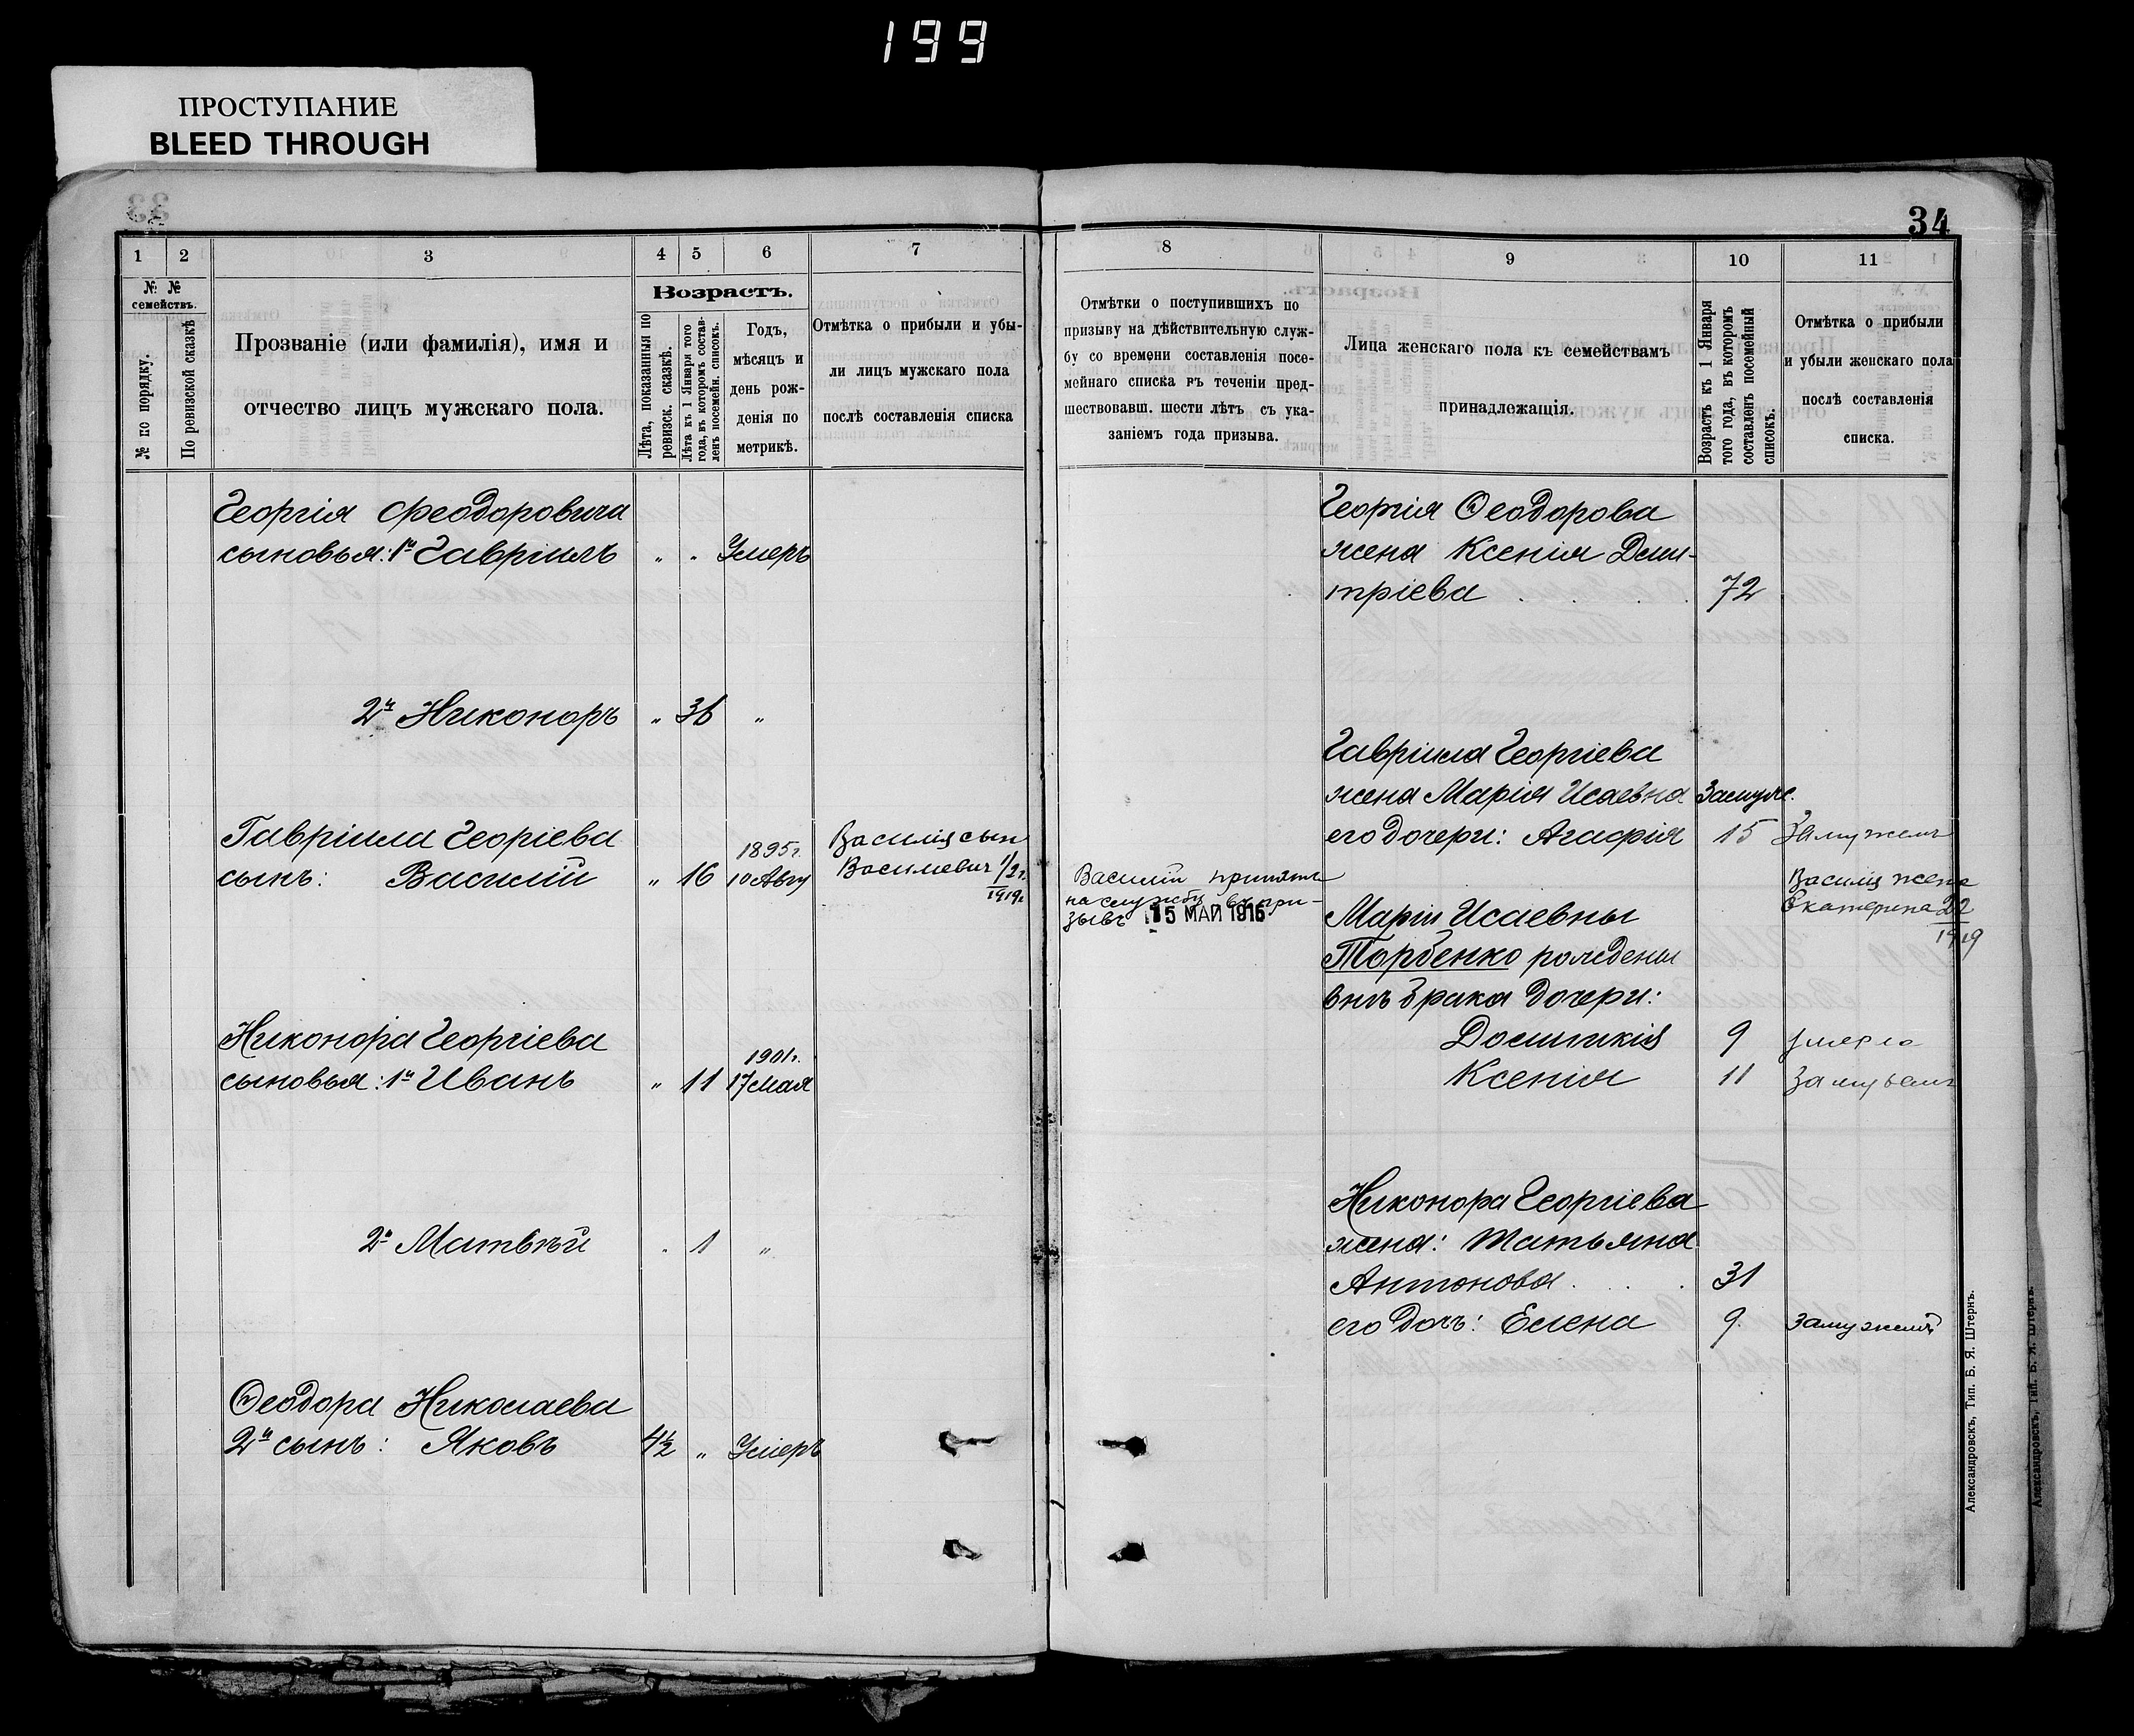 199
ПРОСТУПАНИЕ
BLEED THROUGH
33
34
1 2 3 4 5 6 7
№ № семействъ.
№ по порядку.
По ревизской сказкѣ
Прозваніе (или фамилія), имя и
отчество лицъ мужскаго пола.
Возрастъ.
Лѣта, показанныя по
ревизск. сказкѣ.
Лѣта къ 1 Января того
года, въ которомъ состав-
ленъ посемейн. списокъ.
Годъ,
мѣсяцъ и
день рож-
денія по
метрикѣ.
Отмѣтка о прибыли и убы-
ли лицъ мужскаго пола
послѣ составленія списка
Георгія Феодоровича
сыновья: 1й Гавріилъ " " Умеръ
2й Никоноръ " 36 "
Гавріила Георгіева
сынъ: Василій " 16 1895г. 10 Авгу
Василія сын
Василиевич 1/2г.
1919г.
Никонора Георгіева
сыновья: 1й Иванъ " 11 1901г. 17 Мая
2й Матвѣй " 1 "
Ѳеодора Николаева
2й сынъ: Яковъ 4½ " Умеръ
8 9 10 11
Отмѣтки о поступившихъ по
призыву на дѣйствительную служ-
бу со времени составленія посе-
мейнаго списка въ теченіи пред-
шествовавш. шести лѣтъ съ ука-
заніемъ года призыва.
Лица женскаго пола къ семействамъ
принадлежащія.
Возрастъ къ 1 Января
того года, въ которомъ
составленъ посемейный
списокъ.
Отмѣтка о прибыли
и убыли женскаго пола
послѣ составленія
списка.
Георгія Ѳеодорова
жена Ксенія Дми-
тріева 72
Гавріила Георгіева
жена Марія Исаевна Замуж.
его дочери: Агафія 15 Замужемъ
Василій принятъ
на службу въ при-
зывъ 15 МАЙ 1916
Василія жена
Екатерина 22
1919
Маріи Исаевны
Торбенко рождены
внѣ брака дочери:
Домникія 9 умерла
Ксенія 11 Замужемъ
Никонора Георгіева
жена: Татьяна
Антонова 31
его дочь: Елена 9. замужемъ
Александровскъ, Тип. Б. Я. Штернъ.
Александровскъ, Тип. Б. Я. Штернъ.